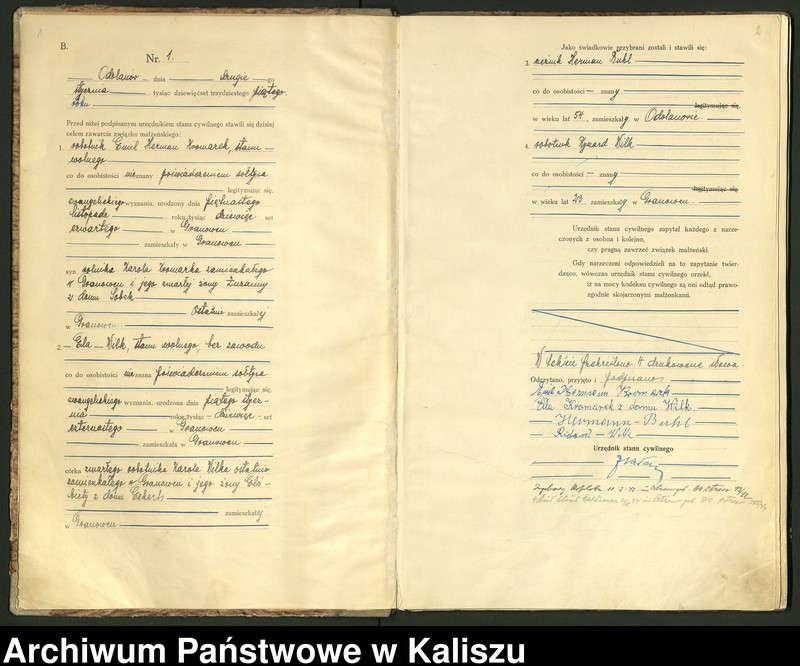 1
B.
Nr. 1.
Odolanów dnia drugie go
stycznia tysiąc dziewięćset trzydziestego piątego
roku
Przed niżej podpisanym urzędnikiem stanu cywilnego stawili się dzisiaj
celem zawarcia związku małżeńskiego:
1. robotnik Emil Herman Kromarek, stanu
wolnego
co do osobistości nieznany poświadczeniem sołtysa
legitymując się,
ewangelickiego wyznania, urodzony dnia piętnastego
listopada roku tysiąc dziewięć set
czwartego w Granowcu
zamieszkały w Granowcu
syn rolnika Karola Kromarka zamieszkałego
w Granowcu i jego zmarłej żony Zuzanny
z domu Sobek
Ostatnio zamieszkałej
w Granowcu
2. Ela Wilk, stanu wolnego, bez zawodu
co do osobistości nieznana poświadczeniem sołtysa
legitymując się,
ewangelickiego wyznania, urodzona dnia piątego
roku tysiąc dziewięć set
czternastego w Granowcu
zamieszkała w Granowcu
córka zmarłego robotnika Karola Wilka ostatnio
zamieszkałego w Granowcu i jego żony Elż-
biety z domu
zamieszkałej
w Granowcu
2
Jako świadkowie przybrani zostali i stawili się:
3. Herman
co do osobistości znany
legitymując się,
w wieku lat 54, zamieszkały w Odolanowie.
4. robotnik Wilk
co do osobistości znany
legitymując się
w wieku lat 23, zamieszkały w Granowcu.
Urzędnik stanu cywilnego zapytał każdego z narze-
czonych z osobna i kolejno,
czy pragną zawrzeć związek małżeński.
Gdy narzeczeni odpowiedzieli na to zapytanie twier-
dząco, wówczas urzędnik stanu cywilnego orzekł,
iż na mocy kodeksu cywilnego są oni odtąd prawo-
zgodnie skojarzonymi małżonkami.
W tekście przekreślono 4 drukowane słowa.
Odczytano, przyjęto i podpisano
Emil Hermann
Ella Kromarek z domu Wilk
Hermann
Wilk
Urzędnik stanu cywilnego
Archiwum Państwowe w Kaliszu